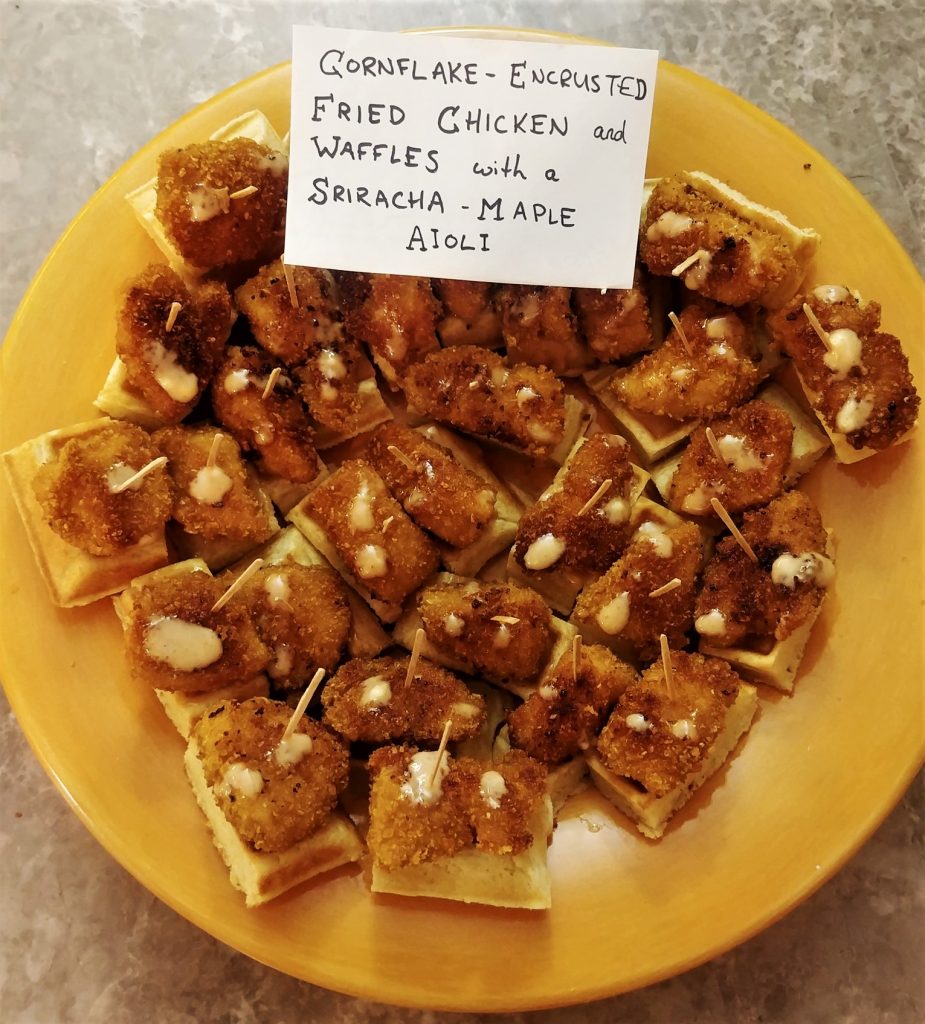 CORNFLAKE - ENCRUSTED
FRIED CHICKEN and
WAFFLES with a
SRIRACHA - MAPLE
AIOLI